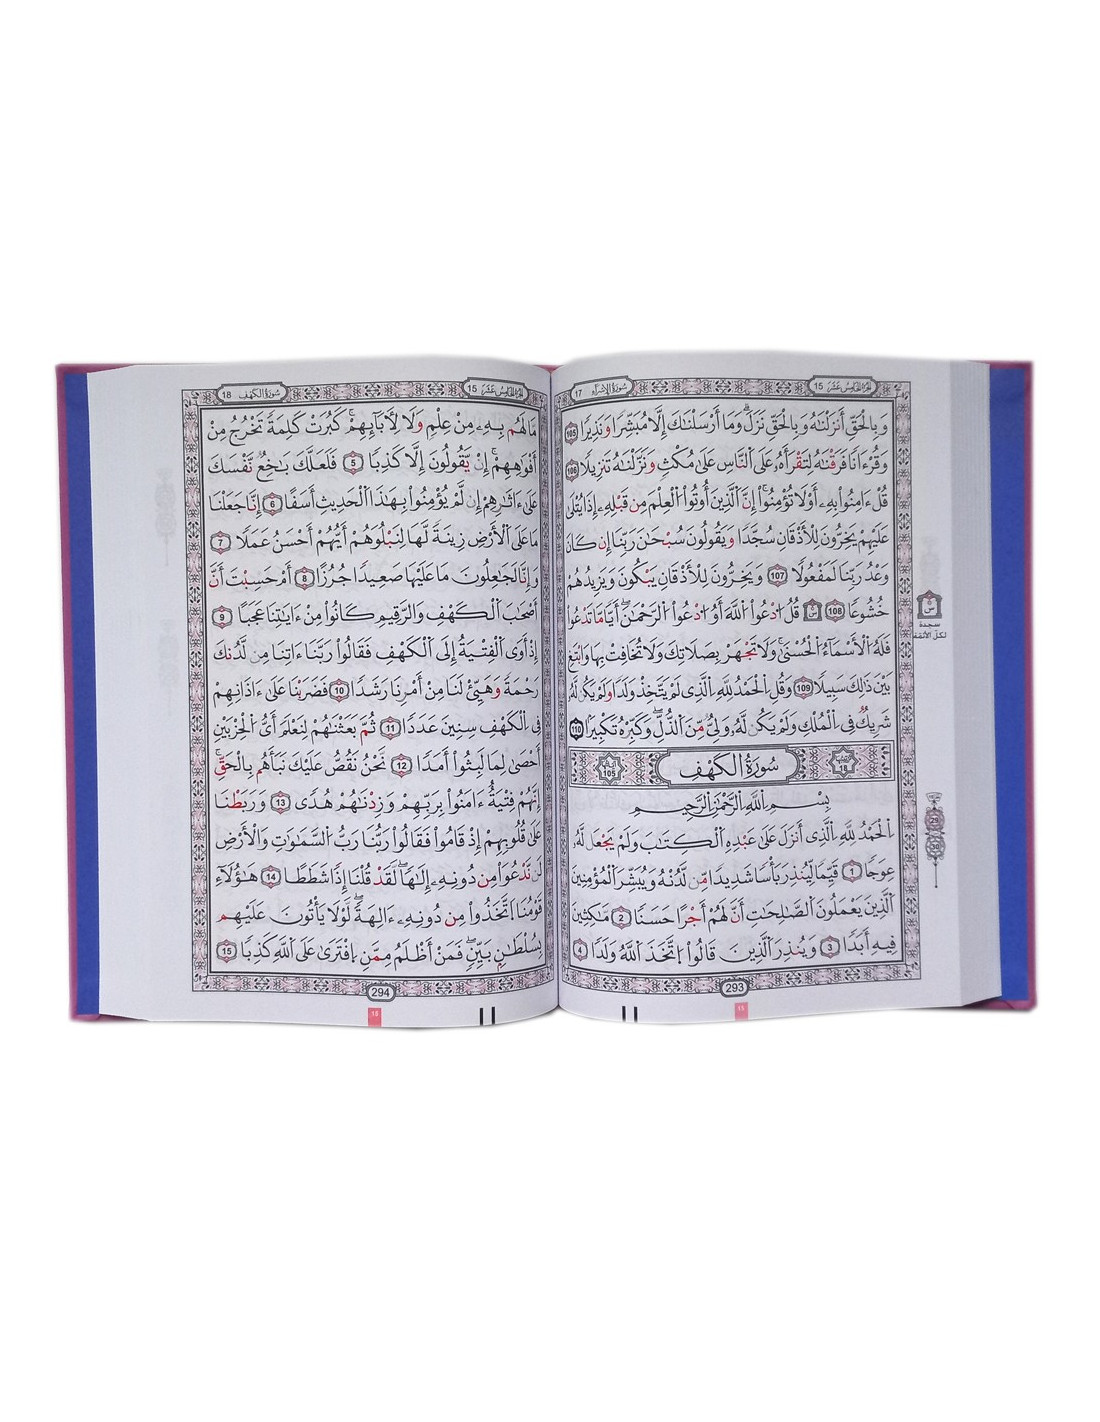 الجزء الخامس عشر 15
سورة الإسراء 17
وَبِالْحَقِّ أَنزَلْنَاهُ وَبِالْحَقِّ نَزَلَ ۗ وَمَا أَرْسَلْنَاكَ إِلَّا مُبَشِّرًا وَنَذِيرًا 105
وَقُرْءَانًا فَرَقْنَاهُ لِتَقْرَأَهُۥ عَلَى النَّاسِ عَلَىٰ مُكْثٍ وَنَزَّلْنَاهُ تَنزِيلًا 106
قُلْ ءَامِنُوا۟ بِهِۦ أَوْ لَا تُؤْمِنُوٓا۟ ۚ إِنَّ الَّذِينَ أُوتُوا۟ الْعِلْمَ مِن قَبْلِهِۦٓ إِذَا يُتْلَىٰ
عَلَيْهِمْ يَخِرُّونَ لِلْأَذْقَانِ سُجَّدًا وَيَقُولُونَ سُبْحَٰنَ رَبِّنَآ إِن كَانَ
وَعْدُ رَبِّنَا لَمَفْعُولًا 107 وَيَخِرُّونَ لِلْأَذْقَانِ يَبْكُونَ وَيَزِيدُهُمْ
خُشُوعًا 108 س قُلِ ادْعُوا۟ اللَّهَ أَوِ ادْعُوا۟ الرَّحْمَٰنَ ۖ أَيًّا مَّا تَدْعُوا۟
فَلَهُ الْأَسْمَآءُ الْحُسْنَىٰ ۚ وَلَا تَجْهَرْ بِصَلَاتِكَ وَلَا تُخَافِتْ بِهَا وَابْتَغِ
بَيْنَ ذَٰلِكَ سَبِيلًا 109 وَقُلِ الْحَمْدُ لِلَّهِ الَّذِى لَمْ يَتَّخِذْ وَلَدًا وَلَمْ يَكُن لَّهُۥ
شَرِيكٌ فِى الْمُلْكِ وَلَمْ يَكُن لَّهُۥ وَلِىٌّ مِّنَ الذُّلِّ ۖ وَكَبِّرْهُ تَكْبِيرًا 110
18 سُورَةُ الكَهْفِ 105
بِسْمِ اللَّهِ الرَّحْمَٰنِ الرَّحِيمِ
الْحَمْدُ لِلَّهِ الَّذِىٓ أَنزَلَ عَلَىٰ عَبْدِهِ الْكِتَٰبَ وَلَمْ يَجْعَل لَّهُۥ
عِوَجًا 1 قَيِّمًا لِّيُنذِرَ بَأْسًا شَدِيدًا مِّن لَّدُنْهُ وَيُبَشِّرَ الْمُؤْمِنِينَ
الَّذِينَ يَعْمَلُونَ الصَّٰلِحَٰتِ أَنَّ لَهُمْ أَجْرًا حَسَنًا 2 مَّٰكِثِينَ
فِيهِ أَبَدًا 3 وَيُنذِرَ الَّذِينَ قَالُوا۟ اتَّخَذَ اللَّهُ وَلَدًا 4
293
15
س
سجدة
لكل الأئمة
الجزء الخامس عشر 15
سورة الكهف 18
مَا لَهُم بِهِۦ مِنْ عِلْمٍ وَلَا لِأَبَآئِهِمْ ۚ كَبُرَتْ كَلِمَةً تَخْرُجُ مِنْ
أَفْوَٰهِهِمْ ۚ إِن يَقُولُونَ إِلَّا كَذِبًا 5 فَلَعَلَّكَ بَٰخِعٌ نَّفْسَكَ
عَلَىٰٓ ءَاثَٰرِهِمْ إِن لَّمْ يُؤْمِنُوا۟ بِهَٰذَا الْحَدِيثِ أَسَفًا 6 إِنَّا جَعَلْنَا
مَا عَلَى الْأَرْضِ زِينَةً لَّهَا لِنَبْلُوَهُمْ أَيُّهُمْ أَحْسَنُ عَمَلًا 7
وَإِنَّا لَجَٰعِلُونَ مَا عَلَيْهَا صَعِيدًا جُرُزًا 8 أَمْ حَسِبْتَ أَنَّ
أَصْحَٰبَ الْكَهْفِ وَالرَّقِيمِ كَانُوا۟ مِنْ ءَايَٰتِنَا عَجَبًا 9
إِذْ أَوَى الْفِتْيَةُ إِلَى الْكَهْفِ فَقَالُوا۟ رَبَّنَآ ءَاتِنَا مِن لَّدُنكَ
رَحْمَةً وَهَيِّئْ لَنَا مِنْ أَمْرِنَا رَشَدًا 10 فَضَرَبْنَا عَلَىٰٓ ءَاذَانِهِمْ
فِى الْكَهْفِ سِنِينَ عَدَدًا 11 ثُمَّ بَعَثْنَٰهُمْ لِنَعْلَمَ أَىُّ الْحِزْبَيْنِ
أَحْصَىٰ لِمَا لَبِثُوٓا۟ أَمَدًا 12 نَّحْنُ نَقُصُّ عَلَيْكَ نَبَأَهُم بِالْحَقِّ ۚ
إِنَّهُمْ فِتْيَةٌ ءَامَنُوا۟ بِرَبِّهِمْ وَزِدْنَٰهُمْ هُدًى 13 وَرَبَطْنَا
عَلَىٰ قُلُوبِهِمْ إِذْ قَامُوا۟ فَقَالُوا۟ رَبُّنَا رَبُّ السَّمَٰوَٰتِ وَالْأَرْضِ
لَن نَّدْعُوَا۟ مِن دُونِهِۦٓ إِلَٰهًا ۖ لَّقَدْ قُلْنَآ إِذًا شَطَطًا 14 هَٰٓؤُلَآءِ
قَوْمُنَا اتَّخَذُوا۟ مِن دُونِهِۦٓ ءَالِهَةً ۖ لَّوْلَا يَأْتُونَ عَلَيْهِم
بِسُلْطَٰنٍ بَيِّنٍ ۖ فَمَنْ أَظْلَمُ مِمَّنِ افْتَرَىٰ عَلَى اللَّهِ كَذِبًا 15
294